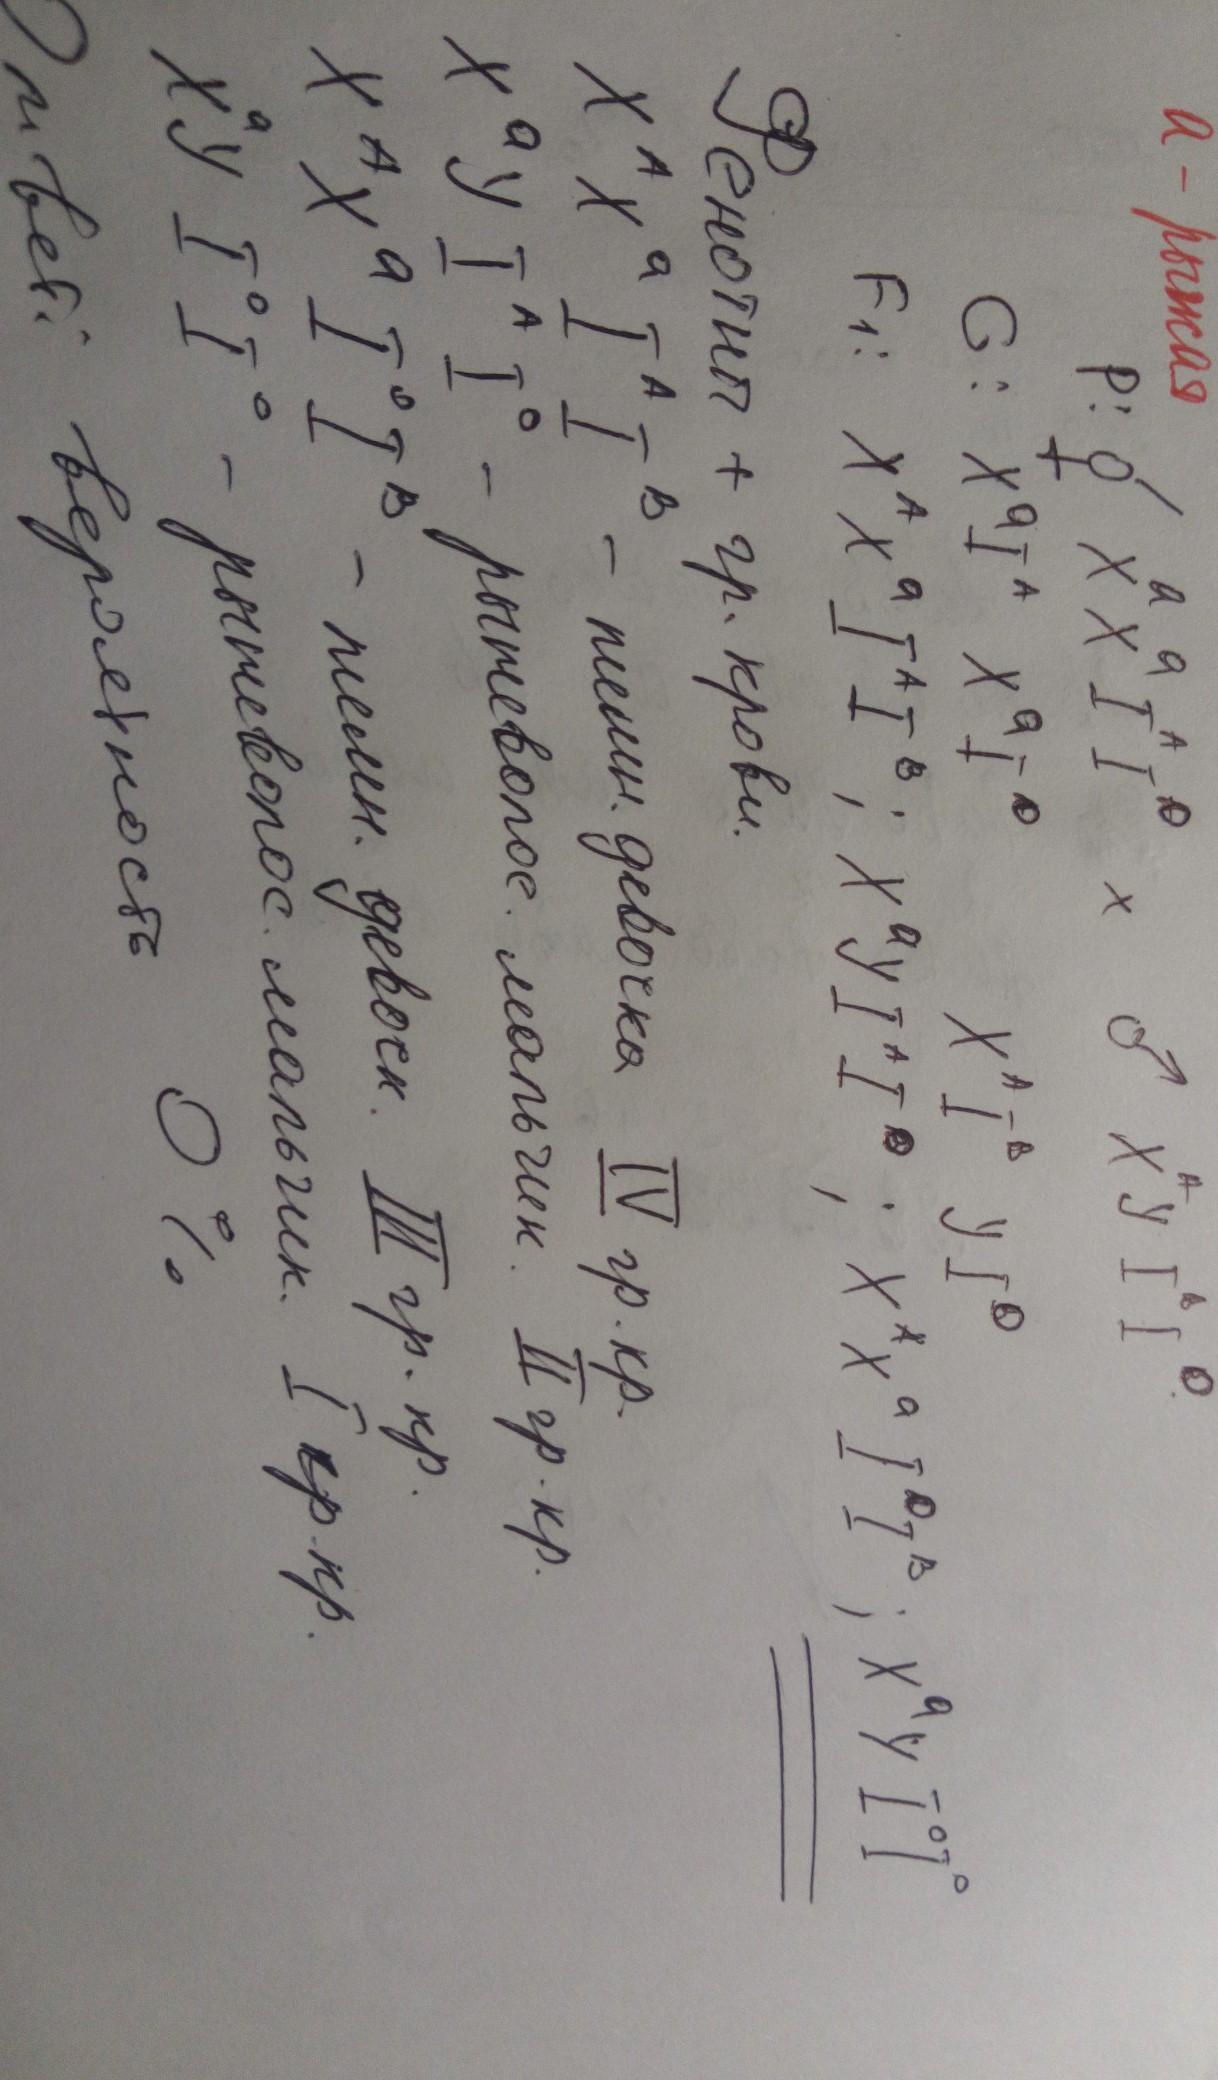 а - рыжая
P: ♀ XᵃXᵃIᴬI⁰ x ♂ XᴬYIᴮI⁰
G: XᵃIᴬ XᵃI⁰ XᴬIᴮ YI⁰
F₁: XᴬXᵃIᴬIᴮ; XᵃYIᴬI⁰; XᴬXᵃI⁰Iᴮ; XᵃYI⁰I⁰
Фенотип + гр. крови.
XᴬXᵃIᴬIᴮ - темн. девочка IV гр. кр.
XᵃYIᴬI⁰ - рыжеволос. мальчик. II гр. кр.
XᴬXᵃI⁰Iᴮ - темн. девочк. III гр. кр.
XᵃYI⁰I⁰ - рыжеволос. мальчик. I гр. кр.
Ответ: вероятность 0 %.